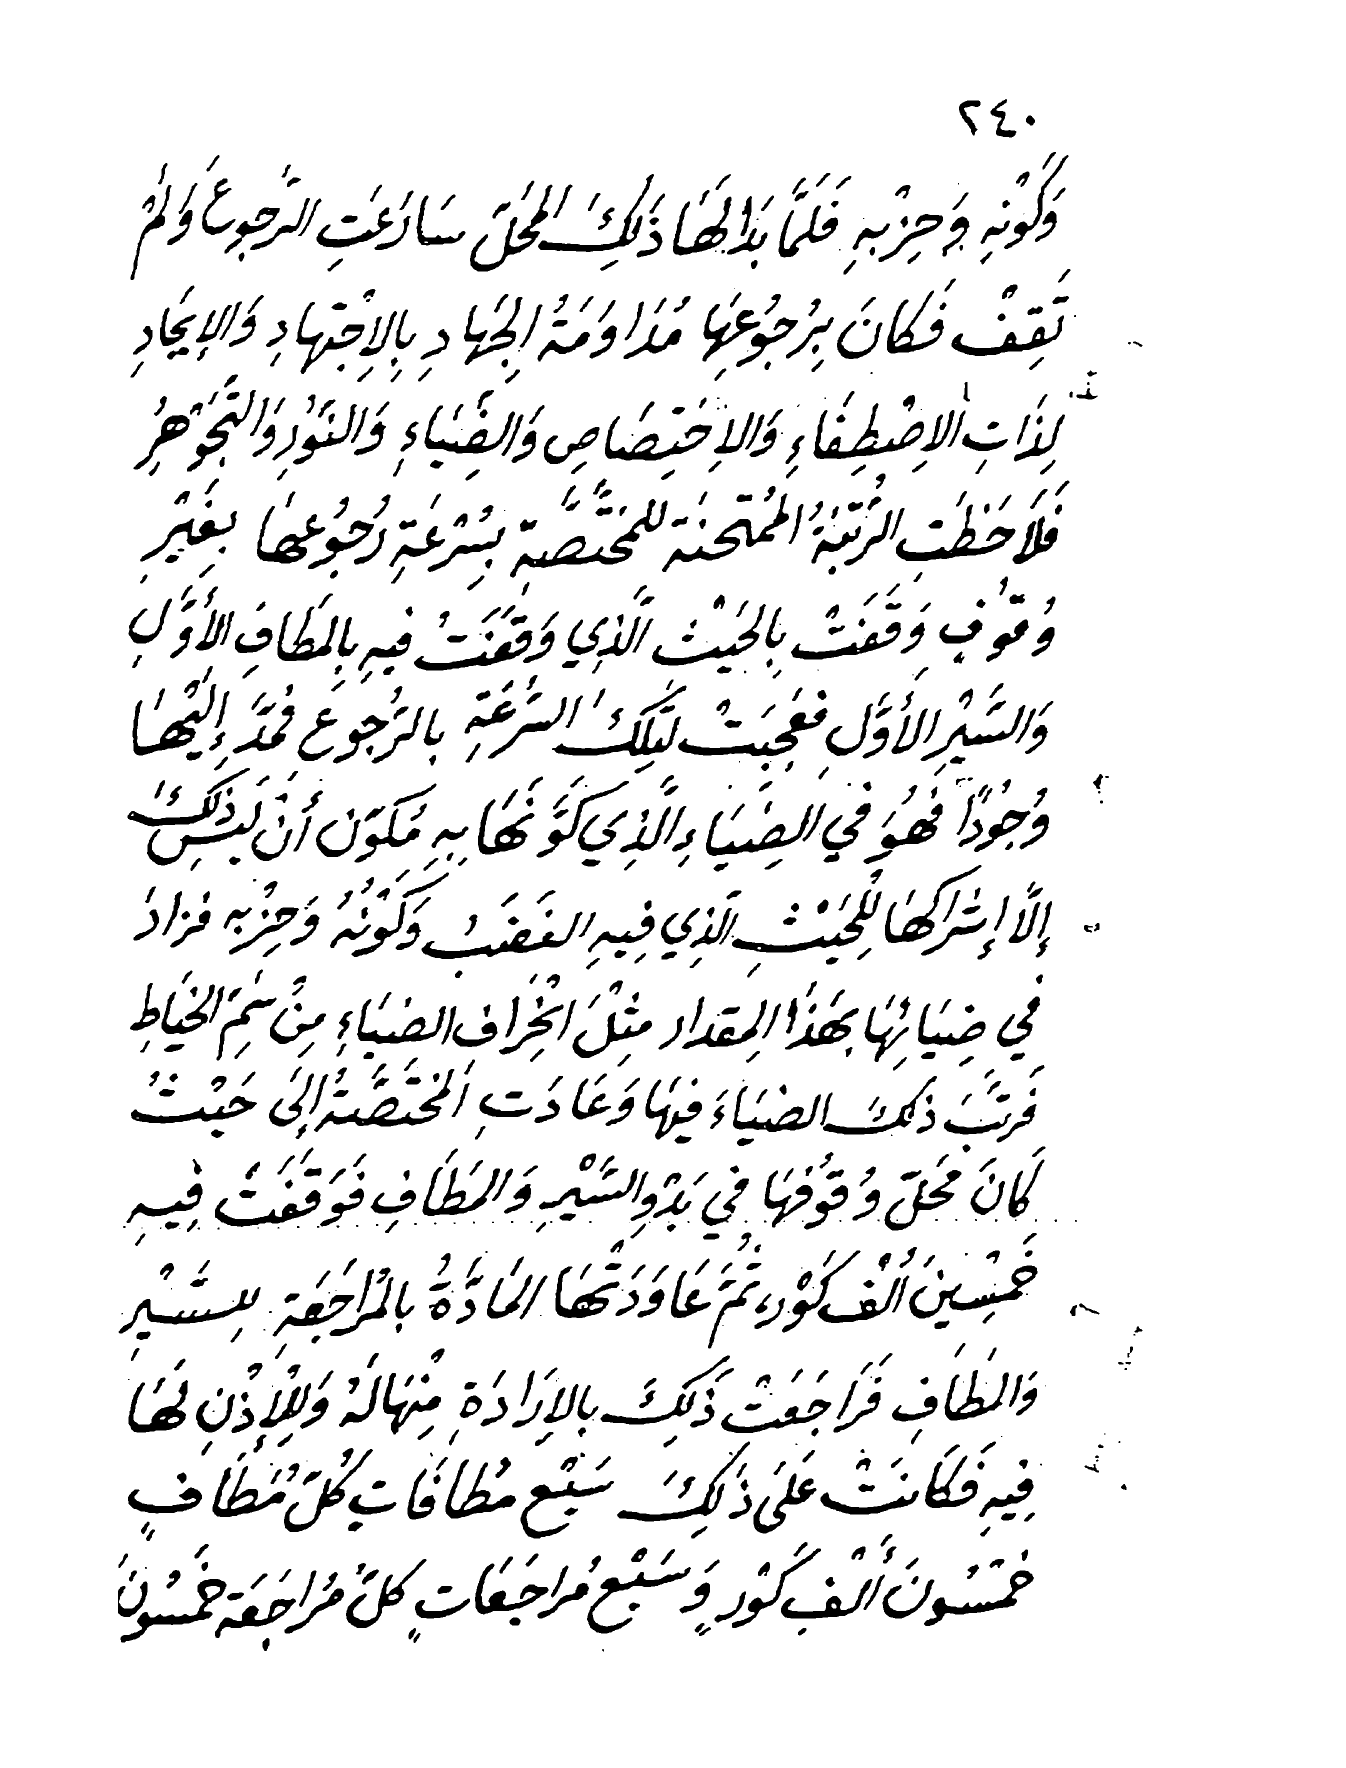 ٢٤٠
وَكَوْنِهِ وَحِزْبِهِ فَلَمَّا بَدَا لَهَا ذَلِكَ المَحَلّ سَارَعَتِ الرُّجوعَ وَلَمْ
تَقِفْ فَكانَ بِرُجُوعِهَا مُدَاوَمَةُ الجَهادِ بِالاِجْتِهادِ وَالإِيجَادِ
لِذَاتِ الاِصْطِفَاءِ وَالاِخْتِصَاصِ وَالضِيَاءِ وَالنُّورِ وَالتَّجَوْهُرِ
فَلاَحَظَتِ الرُتْبَةُ المُمْتَحنَة لِلمُختَصَّةِ بِسُرْعَةِ رُجُوعِهَا بِغَيْرِ
وُقوُفٍ وَقَفَتْ بِالحَيْثِ الَّذِي وَقَفَتْ فيهِ بِالمَطَافِ الأَوَّلِ
وَالسَّيْرِ الأَوَّلِ فَعَجِبَتْ لِتِلكَ السُرْعَةِ بالرُجوعِ فَمَدَّ إِلَيْهَا
وُجُودًا فَهُوَ في الضِيَاءِ الَّذِي كَوَّنَهَا بِهِ مُكَوِّن أَنْ لَيسَ ذَلكَ
إِلَّا إِشْراكهَا لِلحَيْثِ الَّذِي فيهِ الغَضَبُ وَكَوْنُهُ وَحِزْبه فزادَ
في ضِيَائِهَا بهَذَا المِقدار مِثْلَ انْخِرَافِ الضيَاءِ مِنْ سَمِّ الخيَاطِ
فَرتَّبَ ذلكَ الضيَاءَ فيهَا وَعَادَتِ المُختَصَّةُ إلَى حَيْثُ
كَانَ مَحَلّ وُقوُفِهَا في بَدْوِ السَّيْرِ وَالمَطَافِ فَوَقَفَتْ فِيهِ
خَمْسِينَ أَلْف كَوْر، ثُمَّ عَاوَدَتْهَا المَادَّةُ بالمُرَاجَعَةِ لِلسَّيْرِ
وَالمَطَافِ فَرَاجَعَتْ ذَلِكَ بالإِرَادَةِ مِنْهَا لَهُ وَلِلإِذْنِ لهَا
فِيهِ فَكَانَتْ عَلَى ذَلِكَ سَبْع مطافَاتٍ كُلّ مَطَافٍ
خمْسُونَ أَلْف كَوْرٍ وَسَبْع مُراجَعَاتٍ كلّ مُرَاجَعَة خَمْسُونَ